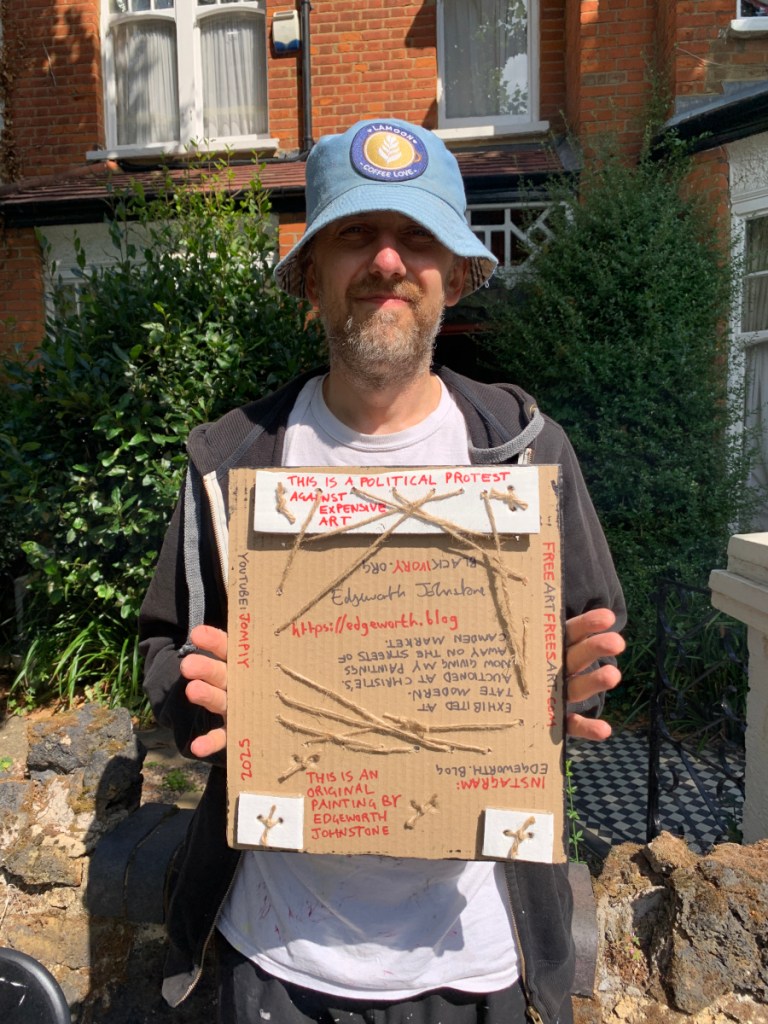 LAMOON
COFFEE LOVE
THIS IS A POLITICAL PROTEST
AGAINST
EXPENSIVE
ART
BLACKIVORY.ORG
Edgeworth Johnstone
https://edgeworth.blog
EXHIBITED AT
TATE MODERN.
AUCTIONED AT CHRISTIE'S.
NOW GIVING MY PAINTINGS
AWAY ON THE STREETS OF
CAMDEN MARKET.
YOUTUBE: JOMPIY
2025
FREEARTFREESART.COM
INSTAGRAM:
EDGEWORTH.BLOG
THIS IS AN
ORIGINAL
PAINTING BY
EDGEWORTH
JOHNSTONE